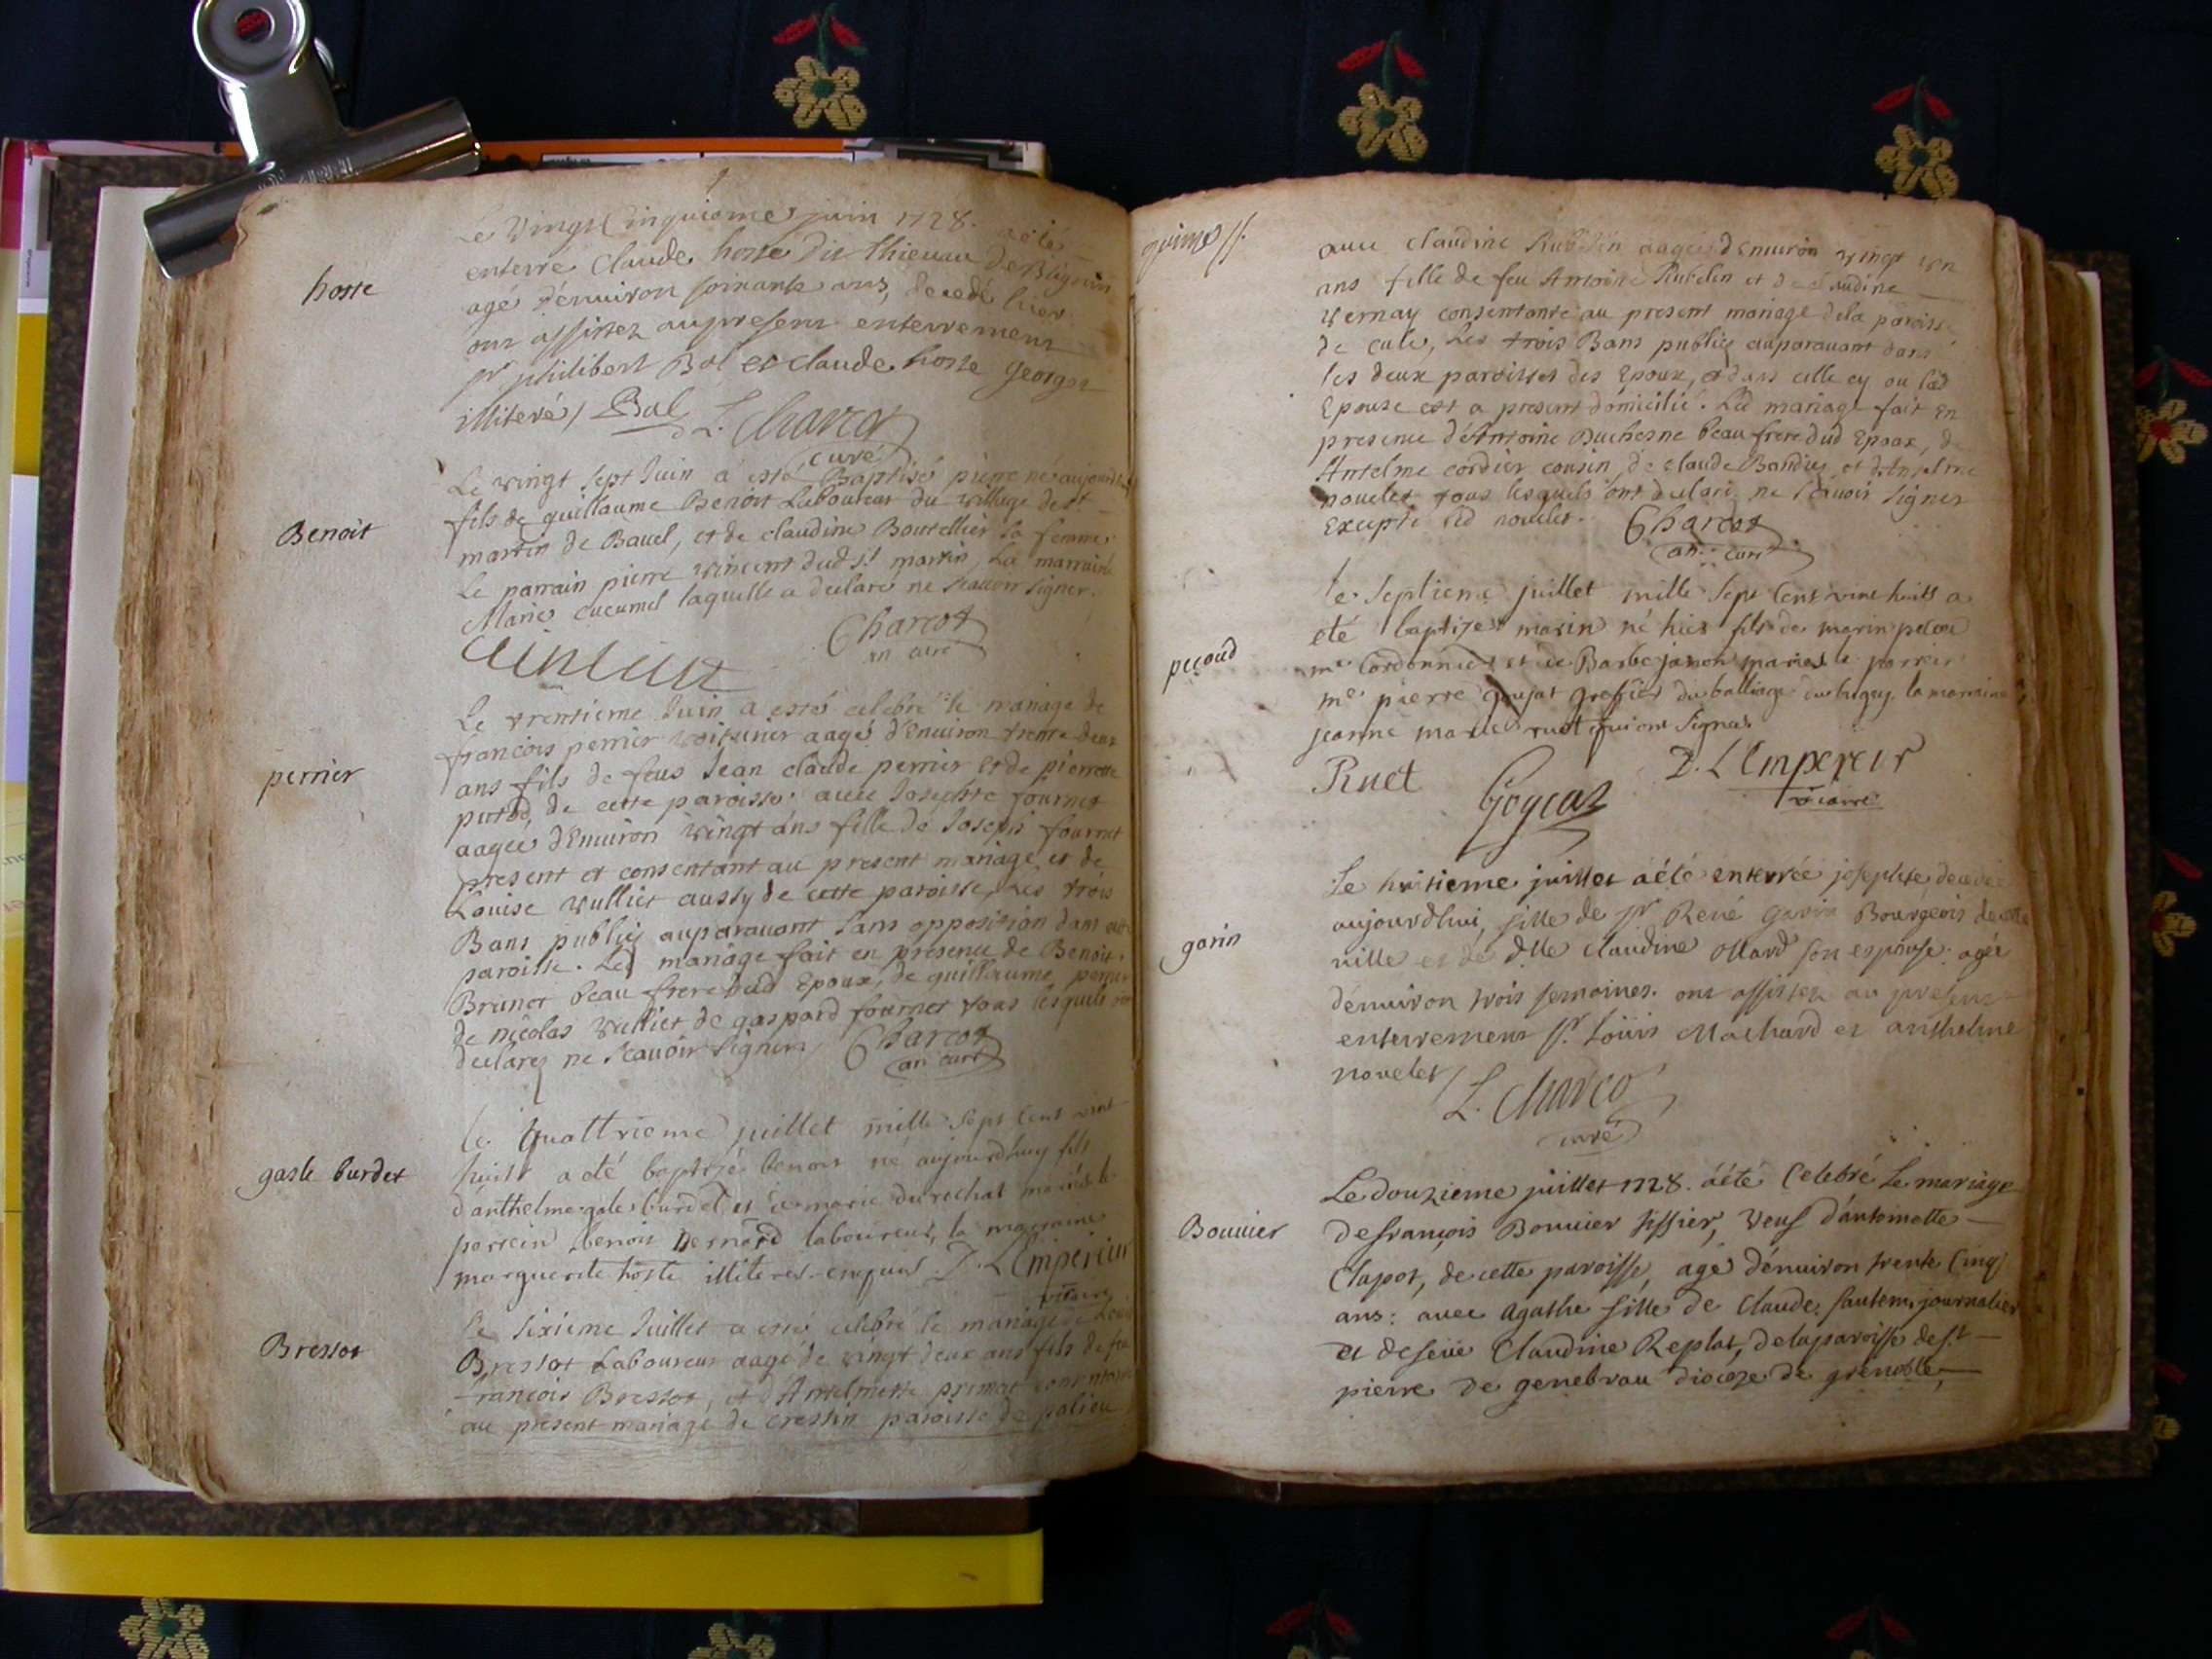 Le Vingt Cinquieme juin 1728. a été
hoste
enterré Claude hoste dit thievan
agé d'enuiron soixante ans, decedé hier
ont assistez au present enterrement
sr philibert Bal et claude hoste
illiteré / Bal L. Charcot
curé
Le vingt sept Juin a esté Baptisé pierre né aujourd
Benoit
fils de guillaume Benoit Laboureur du village de st
martin de Bauel, et de claudine Boutellier sa femme
Le parrain pierre vincent dud st martin, La marraine
Marie cucumel laquelle a declaré ne scauoir signer.
Vincent
Charcot
an curé
Le trentieme Juin a estés celebré le mariage de
perrier
francois perrier voiturier aagés d'Enuiron trente deux
ans fils de feus Jean claude perrier et de pierrette
de cette paroisse. auec Josephte fournet
aagee d'Enuiron vingt ans fille de Joseph fournet
present et consentant au present mariage, et de
Louise vulliet aussy de cette paroisse, Les trois
Bans publiez auparauant sans opposition dans cette
paroisse. Led mariage fait en presence de Benoit
Brunet beau frere dud Epoux, de guillaume perrier
de nicolas vulliet de gaspard fournet tous lesquels ont
declarez ne scauoir signer / Charcot
an curé
le quattrieme juillet mille sept cent vint
gasle burdet
huist a oté baptizé benoit né aujourdhuy fils
d'anthelme gale burdet et de marie durochat mariés le
parrein benoit Bernard laboureur, la marraine
marguerite hoste illiteres enquis D. L'Empereur
vicaire
Le sixieme Juillet a esté celebré le mariage de
Bressot
Bressot Laboureur aagé de vingt deux ans fils de feu
francois Bressot, et d'Antelmette
au present mariage de cressin paroisse de polieu
auec claudine Rubelin aagee d'enuiron vingt un
ans fille de feu Antoine Rubelin et de claudine
vernay consentante au present mariage de la paroisse
de cule, Les trois Bans publiez auparauant dans
les deux paroisses des Epoux, et dans celle cy ou lad
Epouse est a present domicilié. Led mariage fait en
presence d'Antoine Duchesne beau frere dud Epoux, de
Antelme cordier cousin, de claude Bandies et d'Antelme
nouelet tous lesquels ont declaré ne scauoir signer
Excepté led nouelet. Charcot
an curé
le septieme juillet mille sept cent vint huits a
été baptizer marin né hier fils de marin
peçoud
me Cordonnier et de Barbe janon mariés le parrein
me pierre goujat greffier du balliage du bugey la marraine
jeanne marie ruet qui ont signés
Ruet
Goyeat
D. L'Empereur
vicaire
Le huitieme juillet a été enterrée josephte, decedée
garin
aujourd'hui, fille de sr René Garin Bourgeois de cette
ville et de dlle claudine ollard son espouse: agée
d'enuiron trois semaines. ont assistez au present
enterrement sr. Loüis Machard et anthelme
nouelet / L. Charco
curé
Le douzieme juillet 1728. a été Celebré Le mariage
Bouuier
de françois Bouuier tissier, veuf d'antoinette
Clapot, de cette paroisse, agé d'enuiron trente Cinq
ans: auec agathe fille de Claude journalier
et de feüe Claudine Replat, de la paroisse de st
pierre de genebrau dioceze de grenoble,